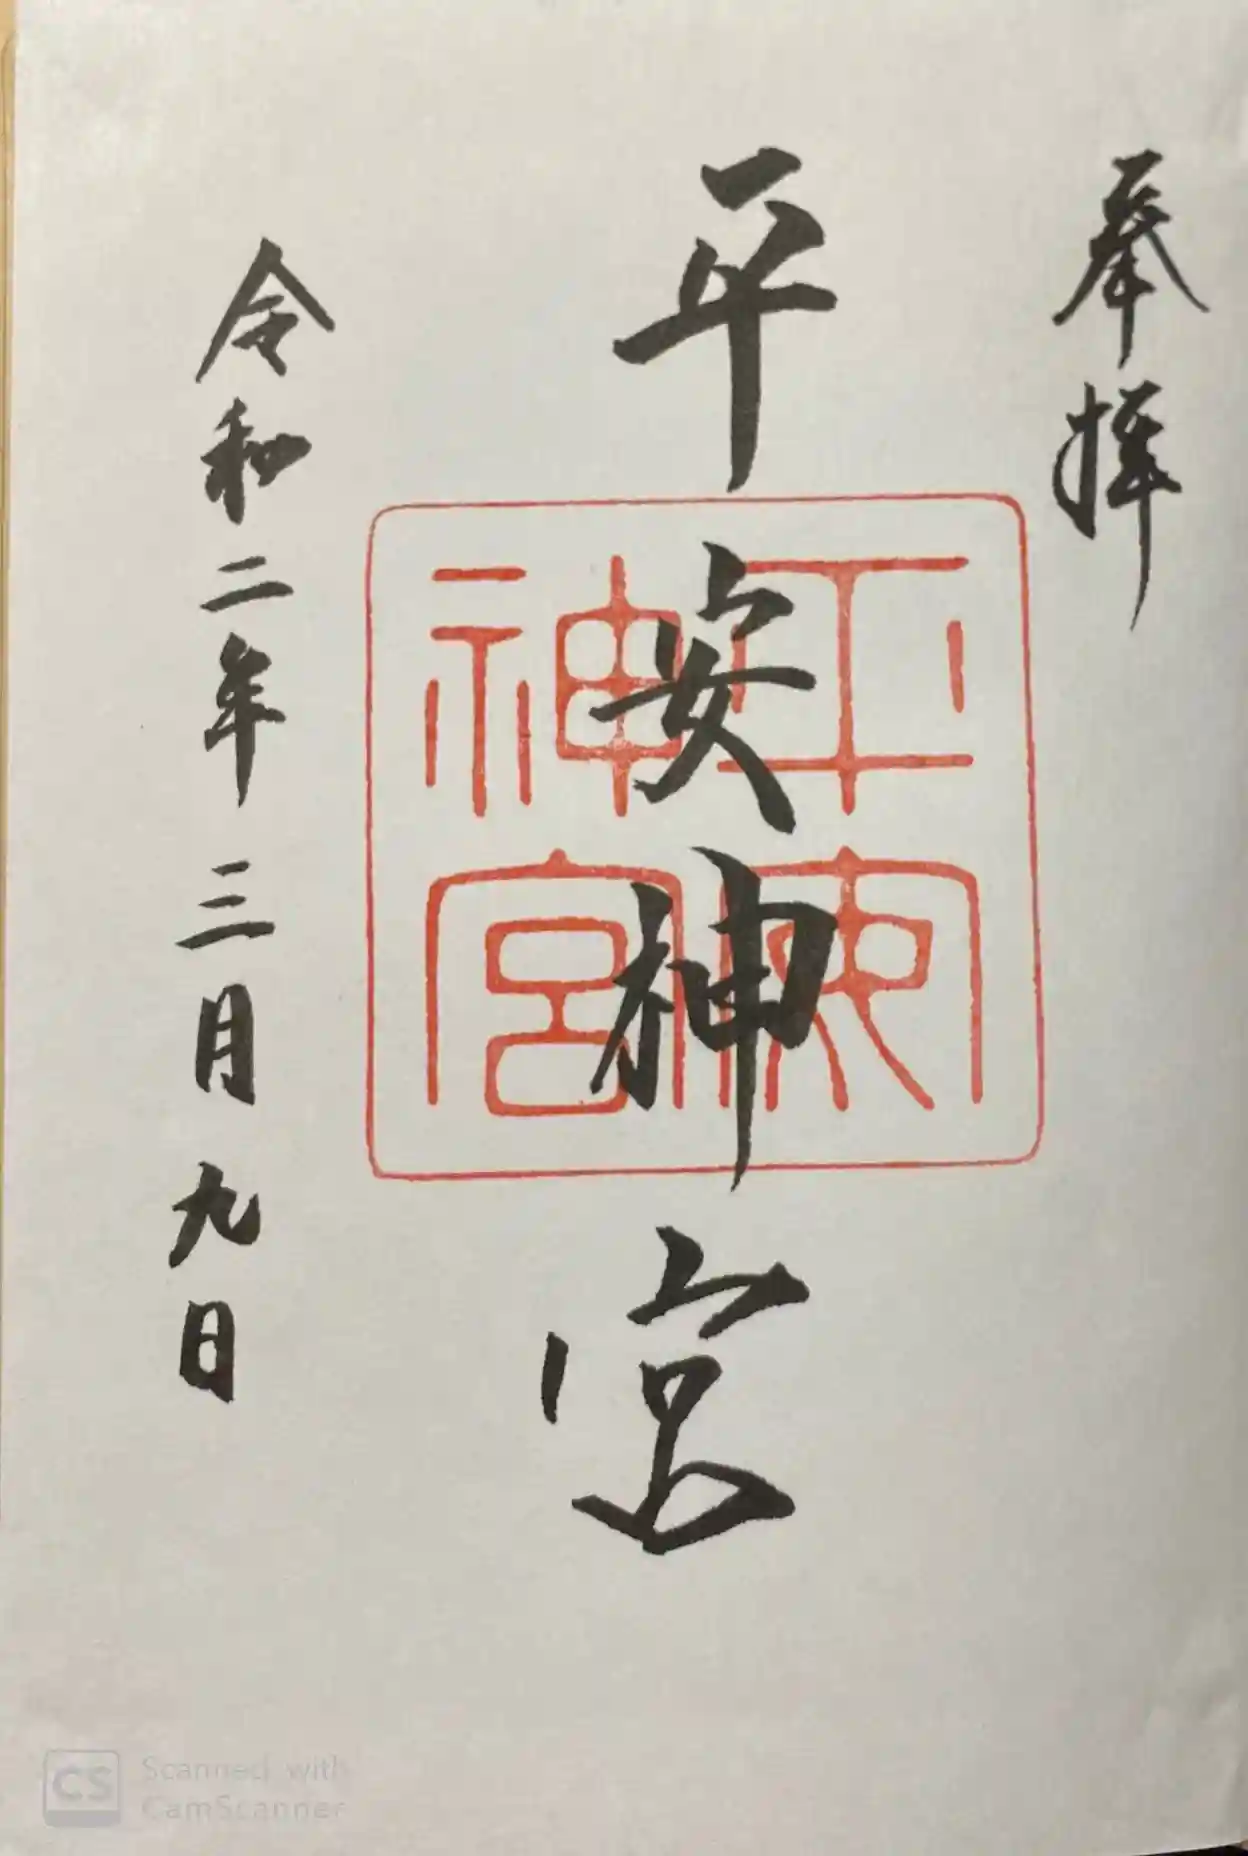 奉拝
平安神宮
平安神宮
令和二年三月九日
CS Scanned with
CamScanner